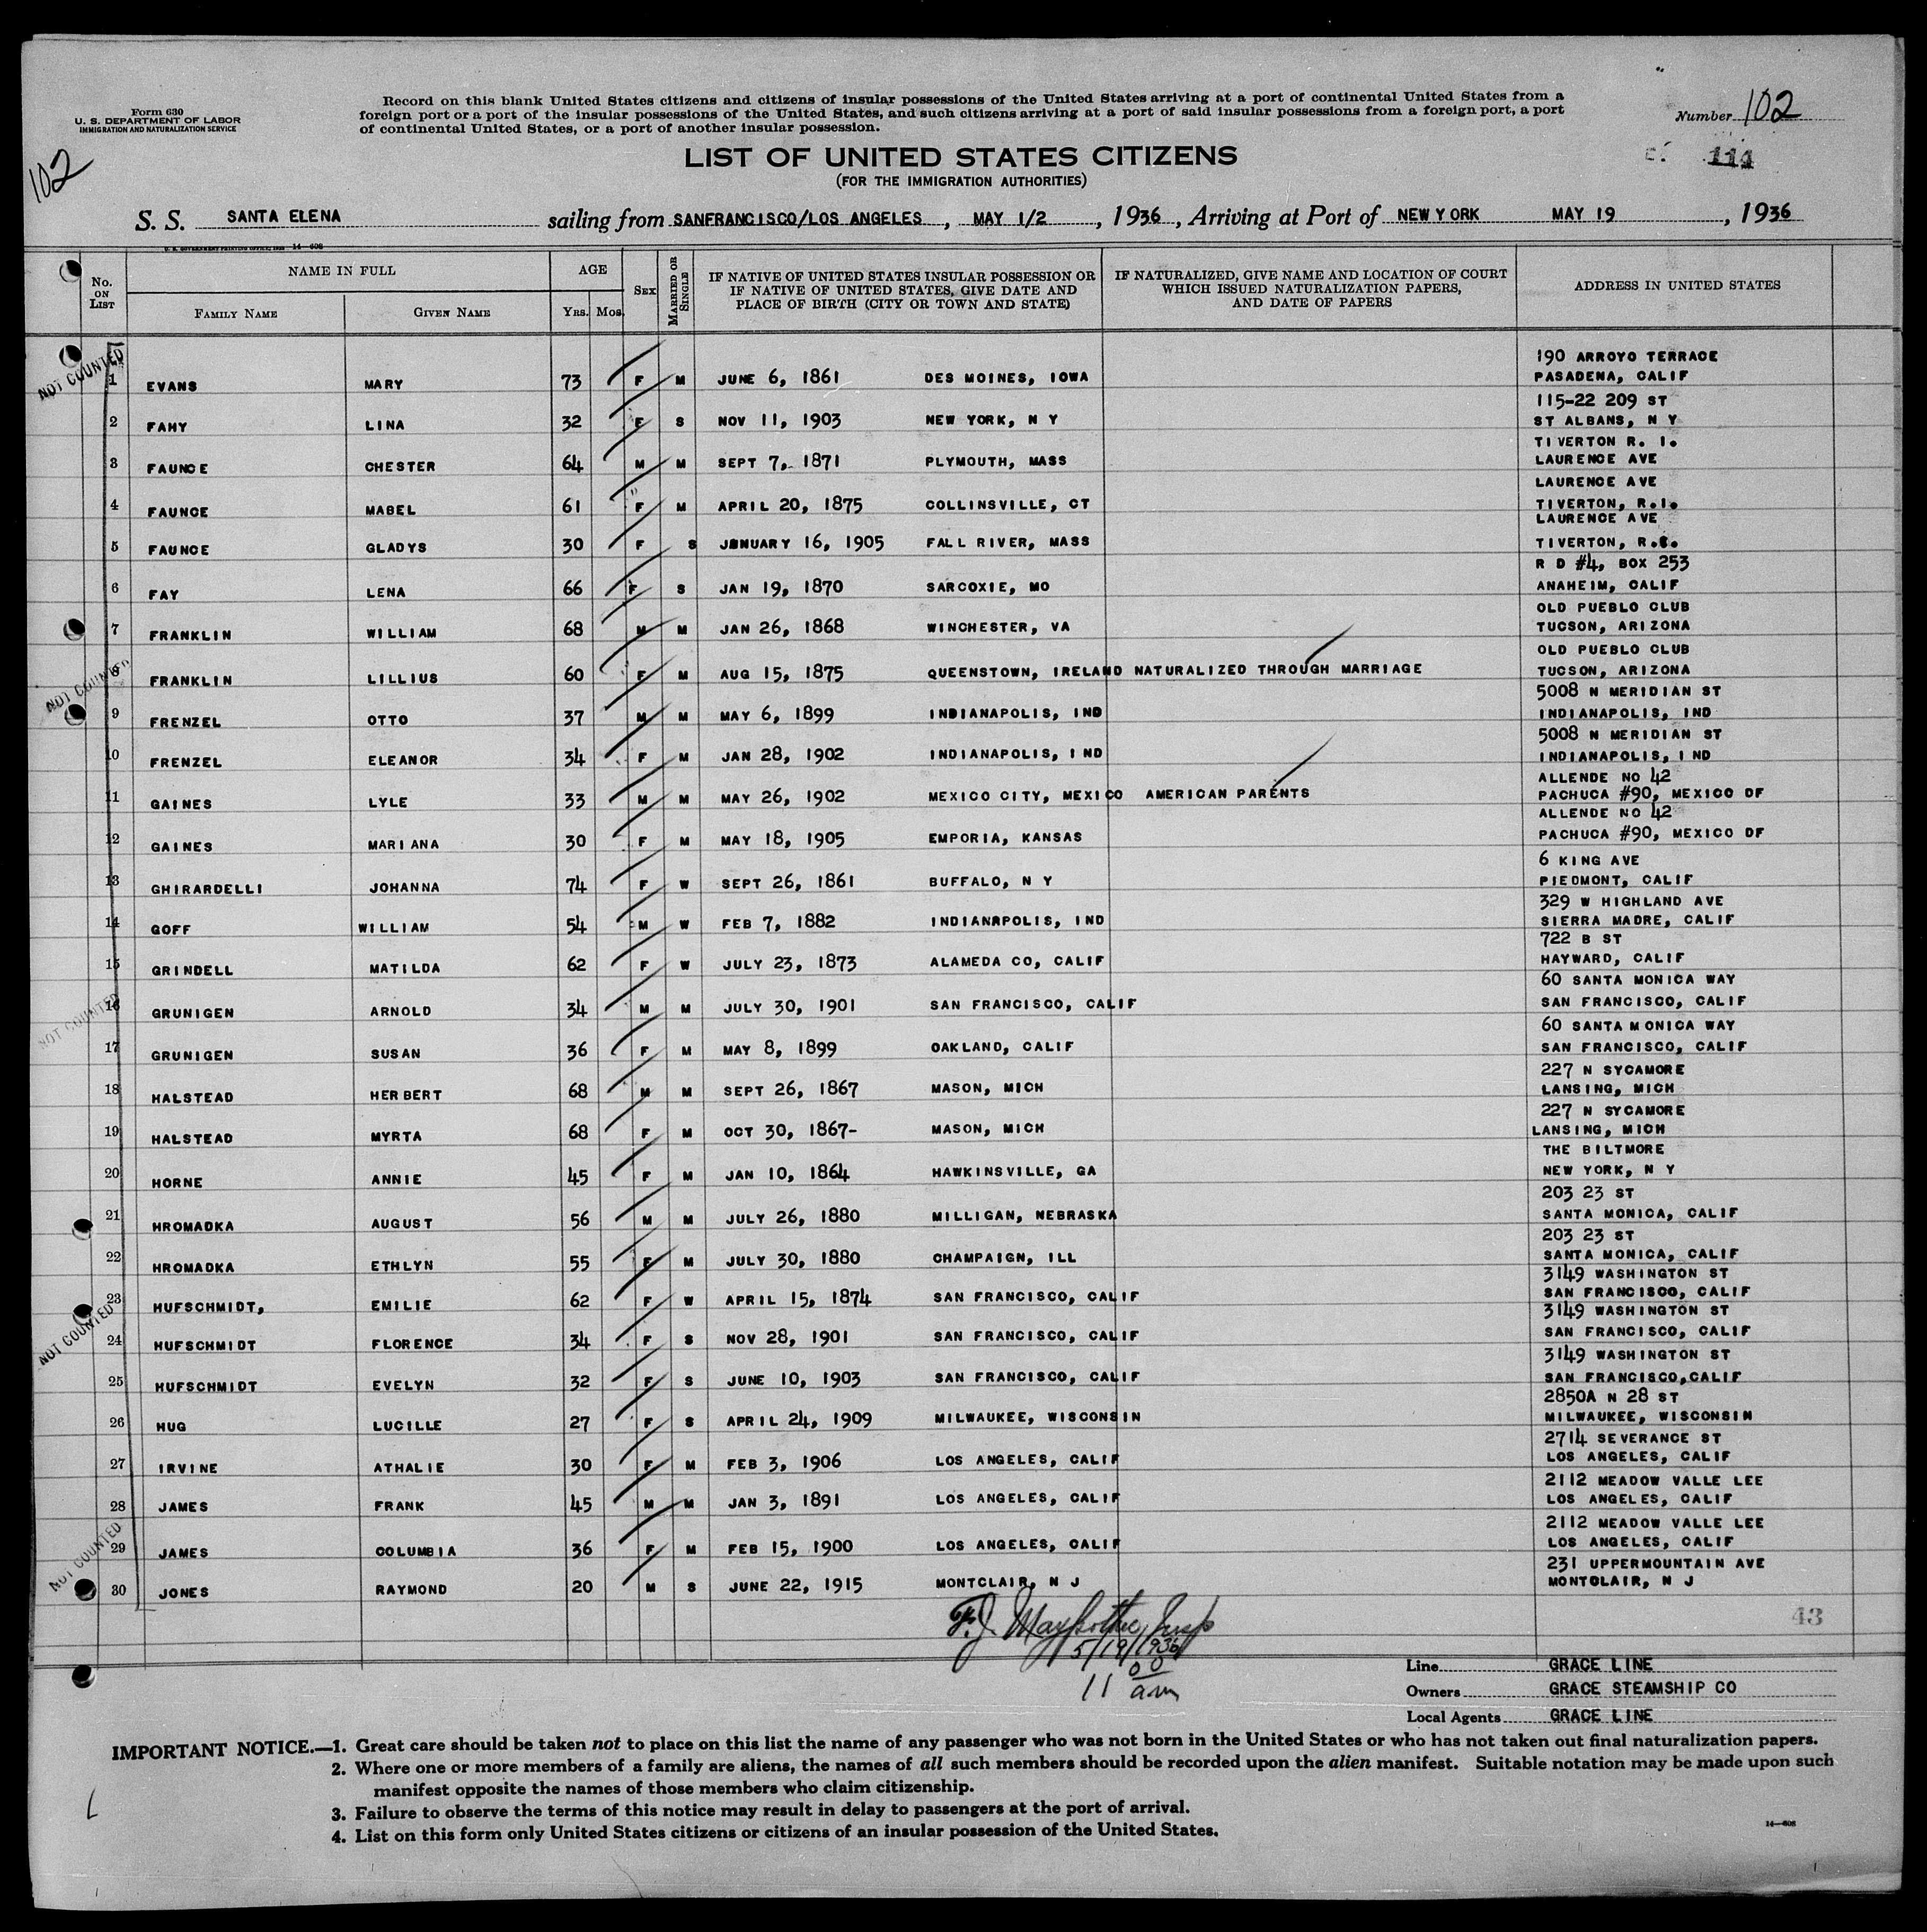 Form 630
U. S. DEPARTMENT OF LABOR
IMMIGRATION AND NATURALIZATION SERVICE
Record on this blank United States citizens and citizens of insular possessions of the United States arriving at a port of continental United States from a
foreign port or a port of the insular possessions of the United States, and such citizens arriving at a port of said insular possessions from a foreign port, a port
of continental United States, or a port of another insular possession.
Number 102
102
LIST OF UNITED STATES CITIZENS
(FOR THE IMMIGRATION AUTHORITIES)
114
S. S. SANTA ELENA sailing from SANFRANCISCO/LOS ANGELES, MAY 1/2, 1936, Arriving at Port of NEW YORK MAY 19, 1936
No. ON LIST
NAME IN FULL
FAMILY NAME GIVEN NAME
AGE
YRS. MOS.
SEX
MARRIED OR SINGLE
IF NATIVE OF UNITED STATES INSULAR POSSESSION OR
IF NATIVE OF UNITED STATES, GIVE DATE AND
PLACE OF BIRTH (CITY OR TOWN AND STATE)
IF NATURALIZED, GIVE NAME AND LOCATION OF COURT
WHICH ISSUED NATURALIZATION PAPERS,
AND DATE OF PAPERS
ADDRESS IN UNITED STATES
NOT COUNTED
190 ARROYO TERRACE
1 EVANS MARY 73 F M JUNE 6, 1861 DES MOINES, IOWA PASADENA, CALIF
115-22 209 ST
2 FAHY LINA 32 F S NOV 11, 1903 NEW YORK, N Y ST ALBANS, N Y
TIVERTON R. I.
3 FAUNCE CHESTER 64 M M SEPT 7, 1871 PLYMOUTH, MASS LAURENCE AVE
LAURENCE AVE
4 FAUNCE MABEL 61 F M APRIL 20, 1875 COLLINSVILLE, CT TIVERTON, R.I.
LAURENCE AVE
5 FAUNCE GLADYS 30 F S JANUARY 16, 1905 FALL RIVER, MASS TIVERTON, R.I.
R D #4, BOX 253
6 FAY LENA 66 F S JAN 19, 1870 SARCOXIE, MO ANAHEIM, CALIF
OLD PUEBLO CLUB
7 FRANKLIN WILLIAM 68 M M JAN 26, 1868 WINCHESTER, VA TUCSON, ARIZONA
OLD PUEBLO CLUB
NOT COUNTED
8 FRANKLIN LILLIUS 60 F M AUG 15, 1875 QUEENSTOWN, IRELAND NATURALIZED THROUGH MARRIAGE TUCSON, ARIZONA
5008 N MERIDIAN ST
9 FRENZEL OTTO 37 M M MAY 6, 1899 INDIANAPOLIS, IND INDIANAPOLIS, IND
5008 N MERIDIAN ST
10 FRENZEL ELEANOR 34 F M JAN 28, 1902 INDIANAPOLIS, IND INDIANAPOLIS, IND
ALLENDE NO 42
11 GAINES LYLE 33 M M MAY 26, 1902 MEXICO CITY, MEXICO AMERICAN PARENTS PACHUCA #90, MEXICO DF
ALLENDE NO 42
12 GAINES MARIANA 30 F M MAY 18, 1905 EMPORIA, KANSAS PACHUCA #90, MEXICO DF
6 KING AVE
13 GHIRARDELLI JOHANNA 74 F W SEPT 26, 1861 BUFFALO, N Y PIEDMONT, CALIF
329 W HIGHLAND AVE
14 GOFF WILLIAM 54 M W FEB 7, 1882 INDIANAPOLIS, IND SIERRA MADRE, CALIF
722 B ST
15 GRINDELL MATILDA 62 F W JULY 23, 1873 ALAMEDA CO, CALIF HAYWARD, CALIF
60 SANTA MONICA WAY
NOT COUNTED
16 GRUNIGEN ARNOLD 34 M M JULY 30, 1901 SAN FRANCISCO, CALIF SAN FRANCISCO, CALIF
60 SANTA MONICA WAY
17 GRUNIGEN SUSAN 36 F M MAY 8, 1899 OAKLAND, CALIF SAN FRANCISCO, CALIF
227 N SYCAMORE
18 HALSTEAD HERBERT 68 M M SEPT 26, 1867 MASON, MICH LANSING, MICH
227 N SYCAMORE
19 HALSTEAD MYRTA 68 F M OCT 30, 1867- MASON, MICH LANSING, MICH
THE BILTMORE
20 HORNE ANNIE 45 F M JAN 10, 1864 HAWKINSVILLE, GA NEW YORK, N Y
203 23 ST
21 HROMADKA AUGUST 56 M M JULY 26, 1880 MILLIGAN, NEBRASKA SANTA MONICA, CALIF
203 23 ST
22 HROMADKA ETHLYN 55 F M JULY 30, 1880 CHAMPAIGN, ILL SANTA MONICA, CALIF
3149 WASHINGTON ST
23 HUFSCHMIDT, EMILIE 62 F W APRIL 15, 1874 SAN FRANCISCO, CALIF SAN FRANCISCO, CALIF
3149 WASHINGTON ST
NOT COUNTED
24 HUFSCHMIDT FLORENCE 34 F S NOV 28, 1901 SAN FRANCISCO, CALIF SAN FRANCISCO, CALIF
3149 WASHINGTON ST
25 HUFSCHMIDT EVELYN 32 F S JUNE 10, 1903 SAN FRANCISCO, CALIF SAN FRANCISCO,CALIF
2850A N 28 ST
26 HUG LUCILLE 27 F S APRIL 24, 1909 MILWAUKEE, WISCONSIN MILWAUKEE, WISCONSIN
2714 SEVERANCE ST
27 IRVINE ATHALIE 30 F M FEB 3, 1906 LOS ANGELES, CALIF LOS ANGELES, CALIF
2112 MEADOW VALLE LEE
28 JAMES FRANK 45 M M JAN 3, 1891 LOS ANGELES, CALIF LOS ANGELES, CALIF
2112 MEADOW VALLE LEE
NOT COUNTED
29 JAMES COLUMBIA 36 F M FEB 15, 1900 LOS ANGELES, CALIF LOS ANGELES, CALIF
231 UPPERMOUNTAIN AVE
30 JONES RAYMOND 20 M S JUNE 22, 1915 MONTCLAIR, N J MONTCLAIR, N J
43
5/19/1936
11 00 am
Line GRACE LINE
Owners GRACE STEAMSHIP CO
Local Agents GRACE LINE
IMPORTANT NOTICE.—1. Great care should be taken not to place on this list the name of any passenger who was not born in the United States or who has not taken out final naturalization papers.
2. Where one or more members of a family are aliens, the names of all such members should be recorded upon the alien manifest. Suitable notation may be made upon such
manifest opposite the names of those members who claim citizenship.
3. Failure to observe the terms of this notice may result in delay to passengers at the port of arrival.
4. List on this form only United States citizens or citizens of an insular possession of the United States.
14—608